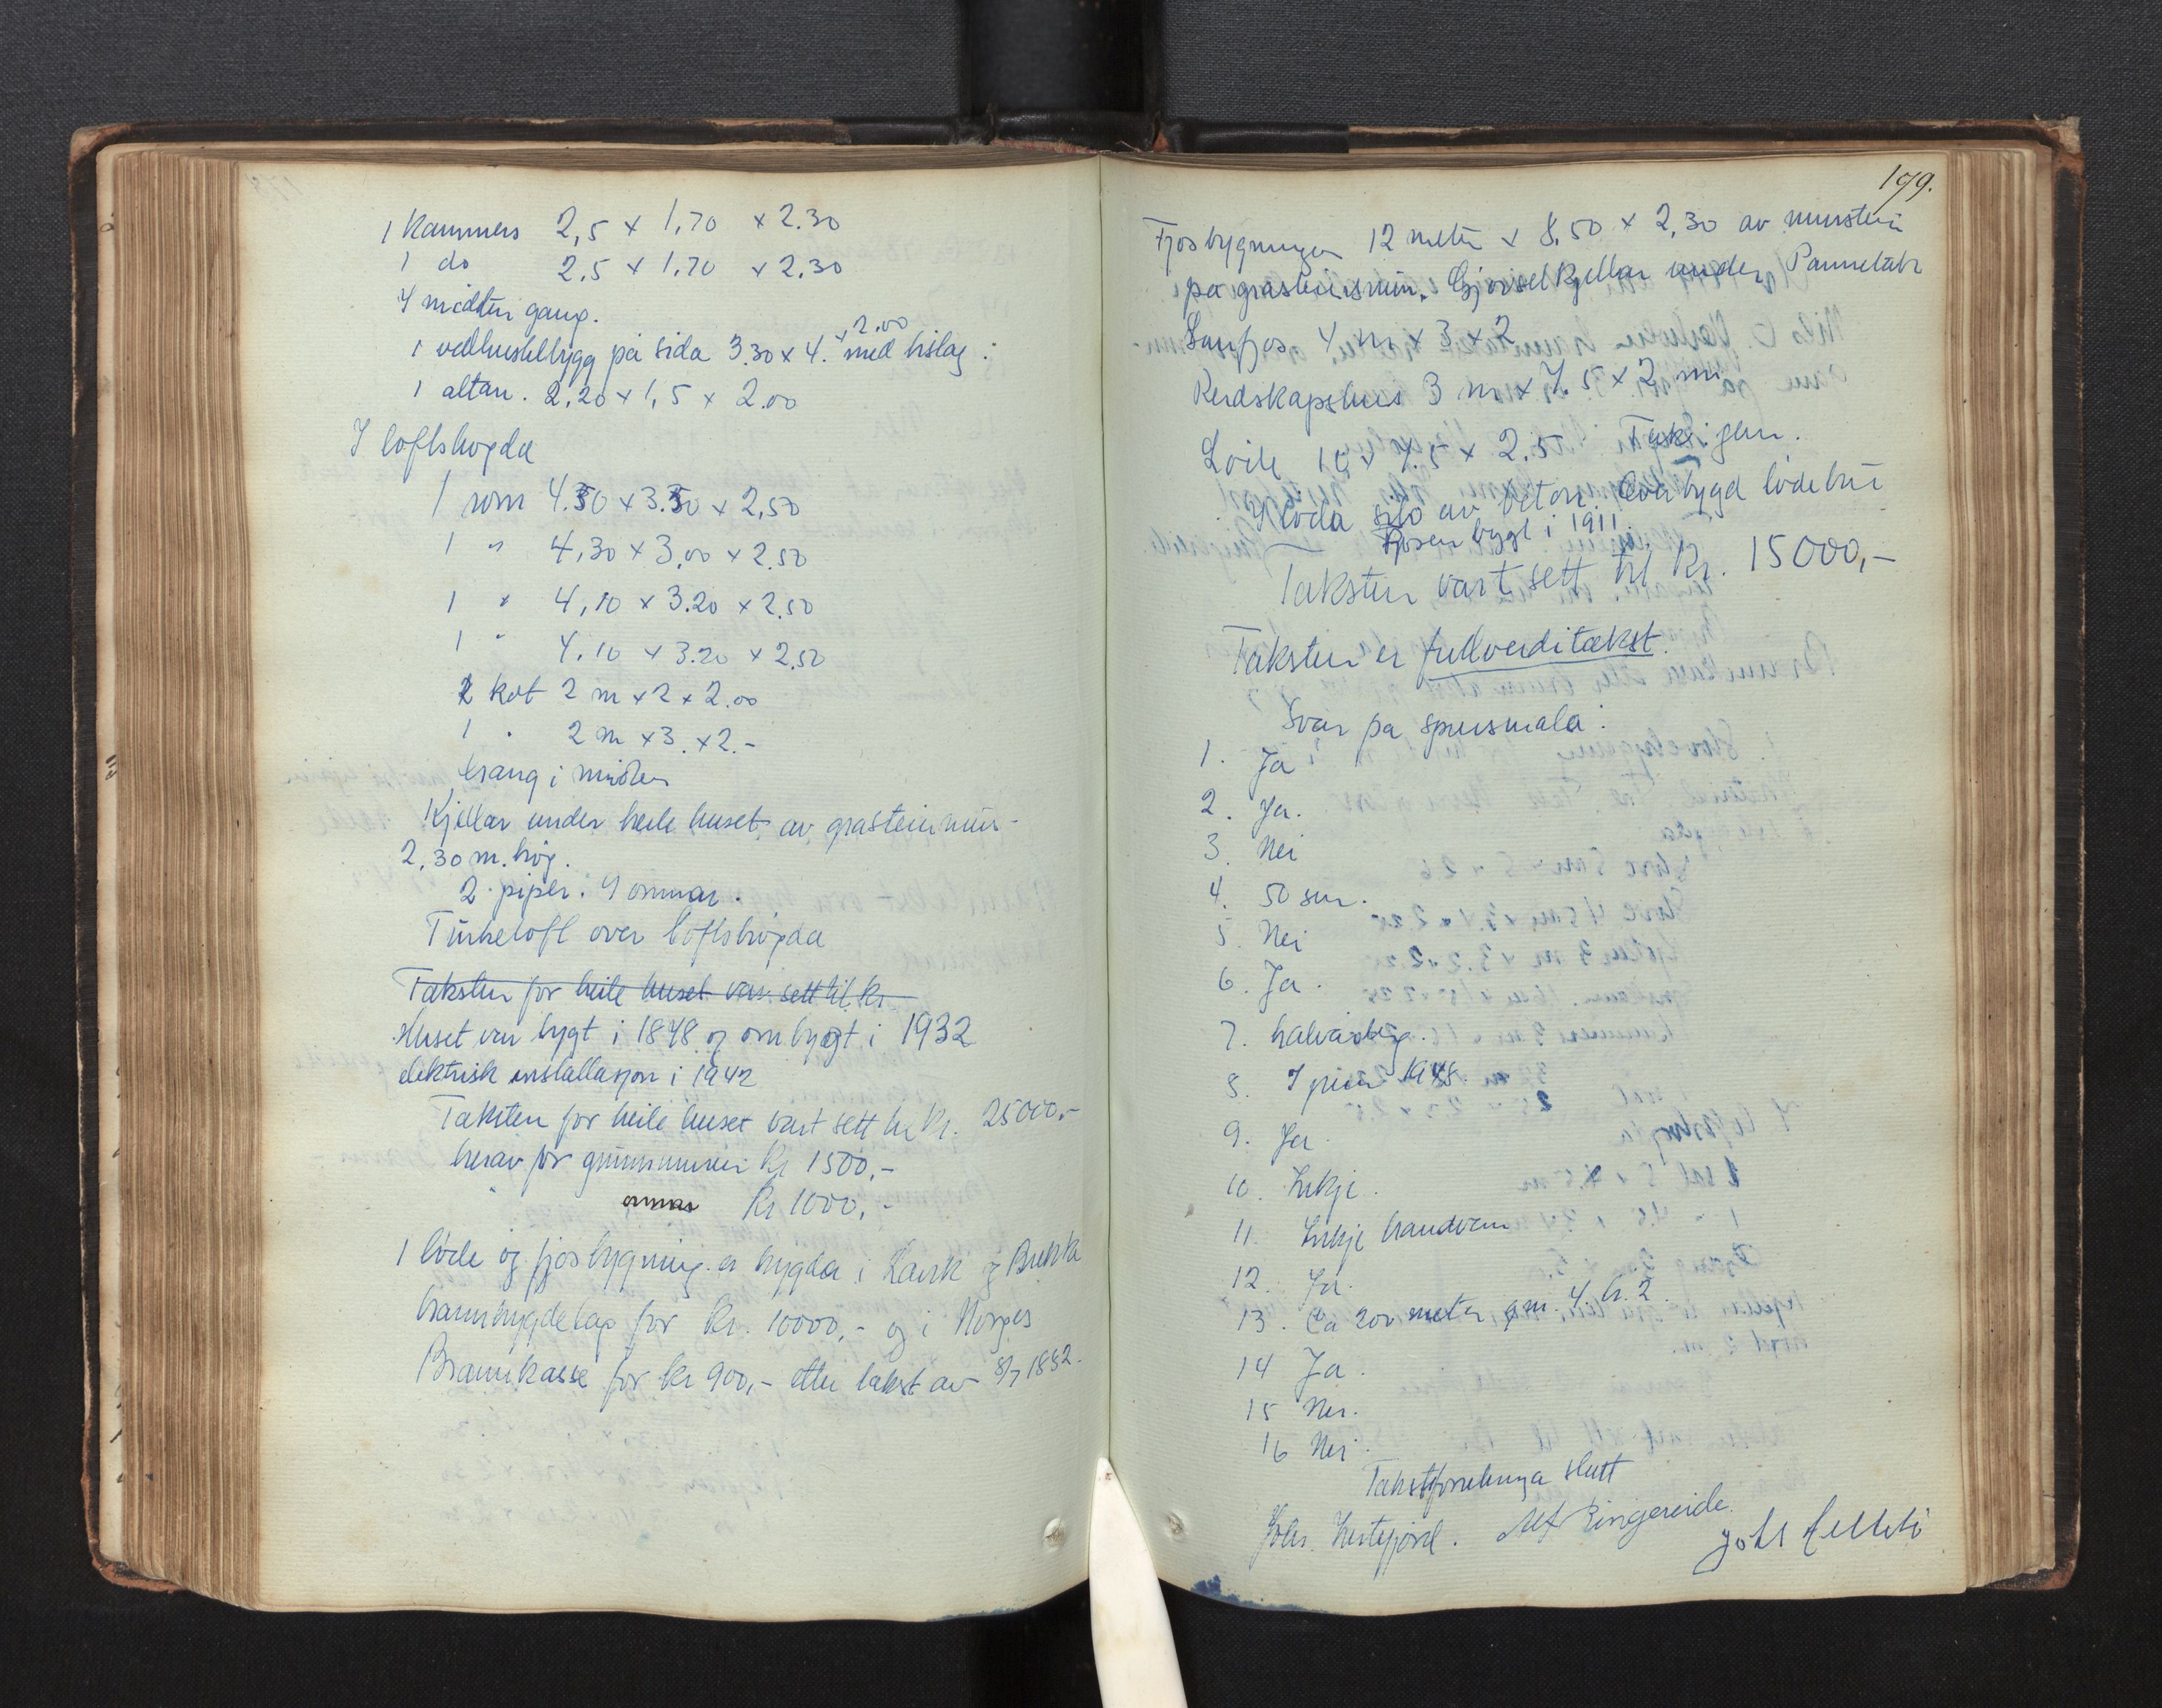 1 kammers 2,5 x 1,70 x 2.30
1 do 2.5 x 1.70 x 2.30
I midten gang.
1 vedhustilbygg på sida 3.30 x 4. x 2.00 med bislag.
1 altan. 2.20 x 1,5 x 2.00
I loftshøgda
1 rom 4.50 x 3.50 x 2,50
1 " 4,30 x 3,00 x 2.50
1 " 4,10 x 3.20 x 2.50
1 " 4.10 x 3.20 x 2.50
2 kot 2 m x 2 x 2.00
1 " 2 m x 3. x 2.-
Gang i midten
Kjellar under heile huset av gråsteinmur-
2,30 m. høg.
2 piper. 4 omnar.
Tørkeloft over loftshøgda
Taksten for heile huset var sett til kr
Huset var bygt i 1848 og ombygt i 1932
elektrisk installasjon i 1942
Taksten for heile huset vart sett til kr. 25000,-
herav for grunnmuren kr 1500,-
" omnar kr 1000,-
1 løde og fjøsbygning er trygda i Lavik og Brekke
branntrygdelag for kr. 10000,- og i Norges
Brannkasse for kr 900,- etter takst av 8/7 1882.
179.
Fjøsbygningen 12 meter x 8,50 x 2,30 av murstein
på gråsteinsmur. Gjødselkjellar under Pannetak
Saufjøs 4 m x 3 x 2
Reidskapshus 3 m x 7.5 x 2 m
Løde 10 x 7.5 x 2.5 Tak i jern.
I løda silo av betong. Overbygd lødebru
Fjøsen bygt i 1911.
Taksten vart sett til kr. 15000,-
Taksten er fullverditakst.
Svar på spursmåla:
1. Ja
2. Ja.
3. Nei
4. 50 cm.
5. Nei
6. Ja.
7. Halvårleg.
8. I juni 1948.
9. Ja.
10. Inkje.
11. Inkje brandvern
12. Ja.
13. Ca 200 meter gnr. 4. br. 2.
14 Ja.
15 Nei.
16 Nei.
Takstforretninga slutt
Johs. Instefjord. Alf Ringereide.